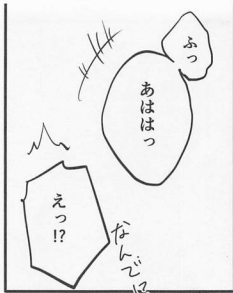 ふっ
あははっ
えっ!?
なんでに